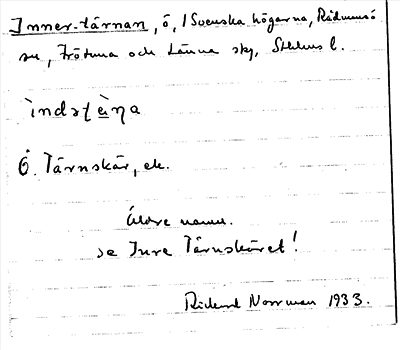 Inner-tärnan, ö, i Svenska högarna, Rådmansö
sn, Frötuna och Länna sky, Sthlms l.
ìndəʈæ̀ɳa
Ö. Tärnskär, ek.
Äldre namn.
se Inre Tärnskäret!
Rickard Norrman 1933.